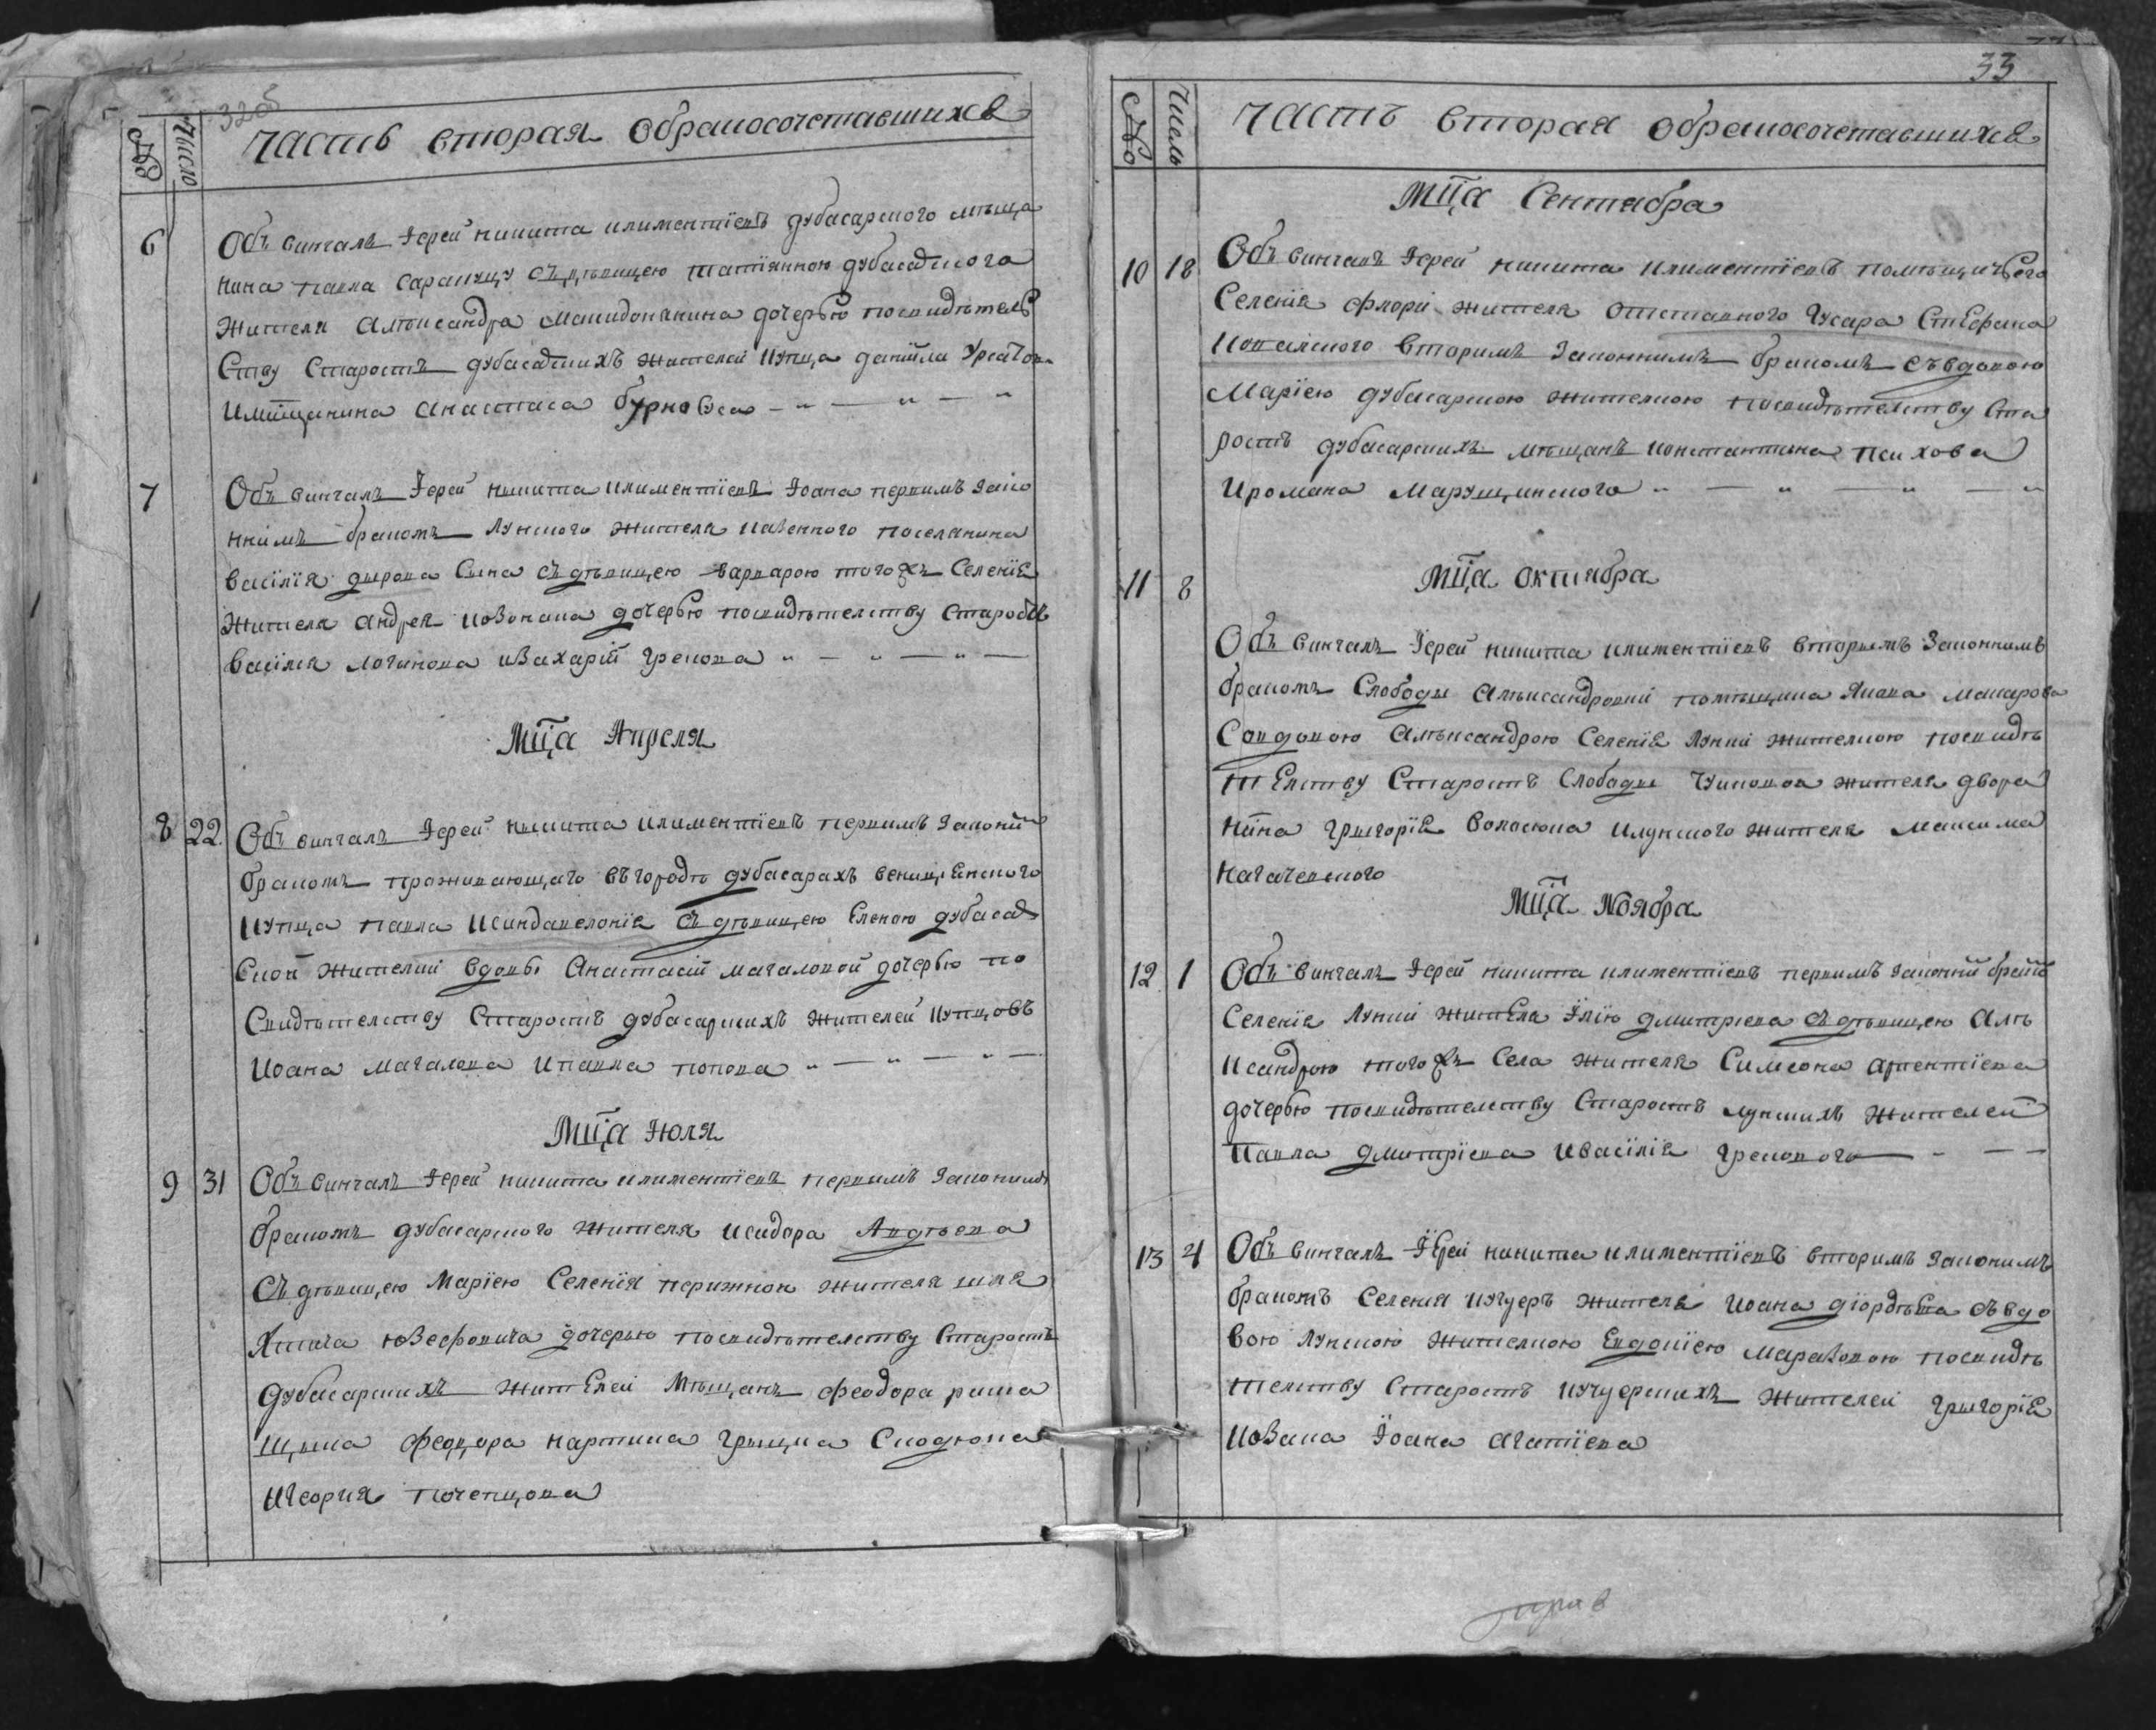 32об
№ Число Часть вторая обракосочетавшихся
6 Объ винчалъ Іерей никита климентіевъ дубасарского мѣща
нина павла саракуцу съ дѣвицею татіянною дубасарского
жителя алѣксандра македонянина дочерью посвидѣтель
Ству Старостъ дубасарскихъ жителей купца даніила
имѣщанина анастаса
7 Объ винчалъ Іерей никита климентіевъ Іоана первимъ зако
ннимъ бракомъ лункого жителя казенного поселянина
васілія дирова сына съ дѣвицею варварою тогожъ Селенія
жителя андрея ковзонана дочерью посвидѣтелству Старостъ
васілія логинова изахарій грекова
Мца Апреля
8 22 Объ винчалъ Іерей никита климентіевъ первимъ законим
бракомъ проживающаго въгородѣ дубасарахъ венициенского
купца павла ксиндавелонія съ дѣвицею Еленою дубасар
Ской жителки вдовы Анастасій магаловой дочерью по
Свидѣтелству Старостъ дубасарскихъ жителей купцовъ
Иоана магалова ипавла попова
Мца Іюля
9 31 Объ винчалъ Іерей никита климентіевъ первимъ законимъ
бракомъ дубасарского жителя исидора Авдѣева
Съ дѣвицею Маріею Селенія перижнои жителя шля
Хтича юзефовича дочерью посвидѣтелству Старостъ
дубасарскихъ жителей Мѣщанъ феодора раша
щика феодора картина грицка Сиодюка
игеоргия поченцова
33
№ Число Часть вторая обракосочетавшихся
Мца Сентября
10 18 Объ винчалъ Іерей никита климентіевъ помѣщичьего
Селенія флори жителя отставного Гусара Стефана
Ковалского вторимъ законнимъ бракомъ съвдовою
Маріею дубасарскою жителкою посвидѣтелству Ста
ростъ дубасарскихъ мѣщанъ константина психова
Иромана Марущинского
Мца октября
11 8
Объ винчалъ Іерей никита климентіевъ вторимъ законнимъ
бракомъ Слободы алѣксандровки помѣщика Якова макарова
Совдовою алѣксандрою Селенія лунки жителкою посвидѣ
телству Старостъ Слободы жителя дворя
нина григорія волосюка илунского жителя максима
нагачевского
Мца Ноября
12 1 Объ винчалъ Іерей никита климентіевъ первимъ законим браком
Селенія лунки жителя Ілію дмитриева съ дѣвицею Алѣ
ксандрою тогожъ села жителя Симеона арсентіева
дочерью посвидѣтелству Старостъ лунскихъ жителей
Павла дмитріева иВасілія грекового
13 4 Объ винчалъ Іерей никита климентіевъ вторимъ законимъ
бракомъ Селения кучуеръ жителя Иоана діордѣева съвдо
вою лунскою жителкою Евдокіею маразовою посвидѣ
телству Старостъ кучуерскихъ жителей григорія
козака Іоана агатіева